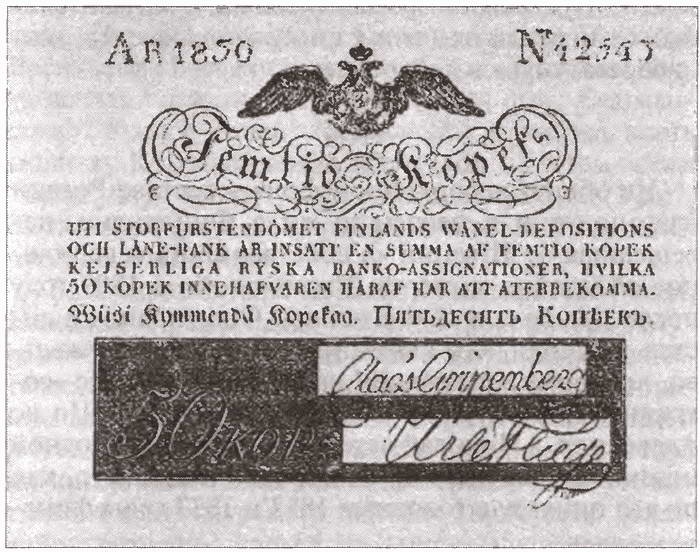 AR 1830 N 42545
Femtio Kopek
UTI STORFURSTENDÖMET FINLANDS WÄXEL-DEPOSITIONS
OCH LÅNE-BANK ÄR INSATT EN SUMMA AF FEMTIO KOPEK
KEJSERLIGA RYSKA BANKO-ASSIGNATIONER, HVILKA
50 KOPEK INNEHAFVAREN HÄRAF HAR ATT ÅTERBEKOMMA.
Wiisi Kymmendä Kopekaa. ПЯТЬДЕСЯТЬ КОПѢЕКЪ.
50 KOP.